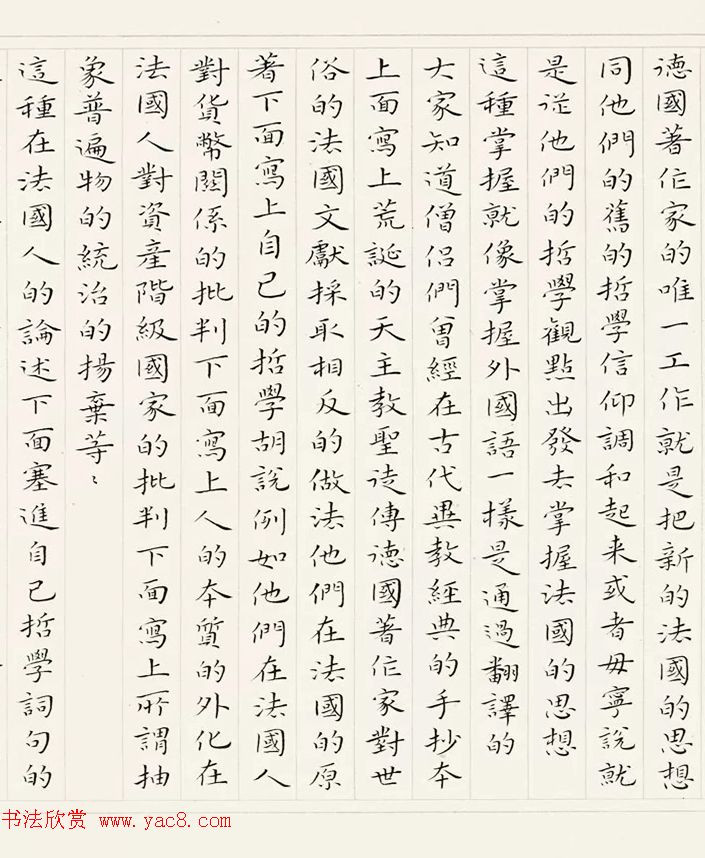 德國著作家的唯一工作就是把新的法國的思想
同他們的舊的哲學信仰調和起来或者毋寧說就
是從他們的哲學觀點出發去掌握法國的思想
這種掌握就像掌握外國語一樣是通過翻譯的
大家知道僧侣們曾經在古代異教經典的手抄本
上面寫上荒誕的天主教聖徒傳德國著作家對世
俗的法國文獻採取相反的做法他們在法國的原
著下面寫上自己的哲學胡說例如他們在法國人
對貨幣關係的批判下面寫上人的本質的外化在
法國人對資產階級國家的批判下面寫上所謂抽
象普遍物的統治的揚棄等々
這種在法國人的論述下面塞進自己哲學詞句的
书法欣赏 www.yac8.com